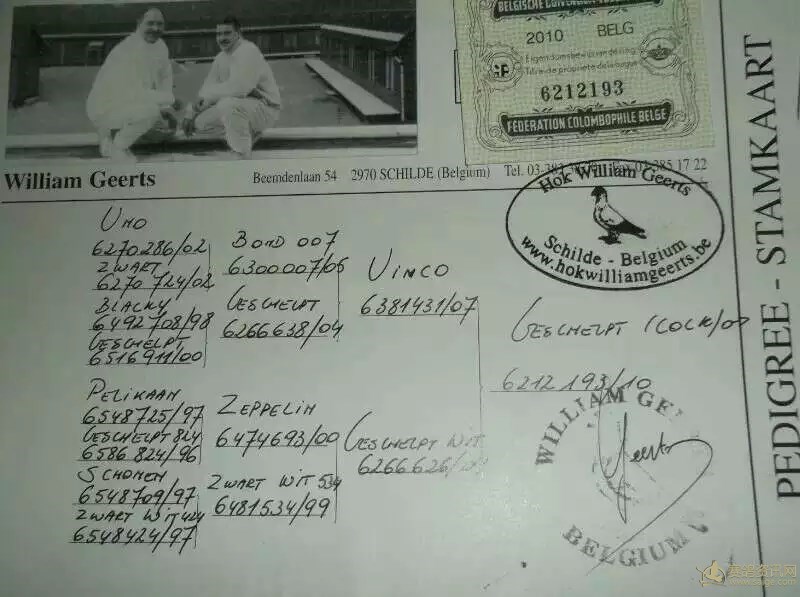 2010 BELG
Eigendomsbewijs van de ring
Titre de propriete de la bague
6212193
FEDERATION COLOMBOPHILE BELGE
William Geerts
Beemdenlaan 54 2970 SCHILDE (Belgium) Tel. 03-385 17 22
Hok William Geerts
Schilde - Belgium
www.hokwilliamgeerts.be
PEDIGREE - STAMKAART
UNO
6270286/02
ZWART
6270724/02
BLACKY
6492708/98
GESCHELPT
6516911/00
BOND 007
6300007/05
GESCHELPT
6266638/04
VINCO
6381431/07
GESCHELPT (COCK/
6212193/10
PELIKAAN
6548725/97
GESCHELPT 824
6586824/96
SCHONEN
6548709/97
ZWART WIT 424
6548424/97
ZEPPELIN
6474693/00
ZWART WIT 534
6481534/99
GESCHELPT WIT
6266626/
WILLIAM GE
Geerts
BELGIUM
赛鸽资讯网